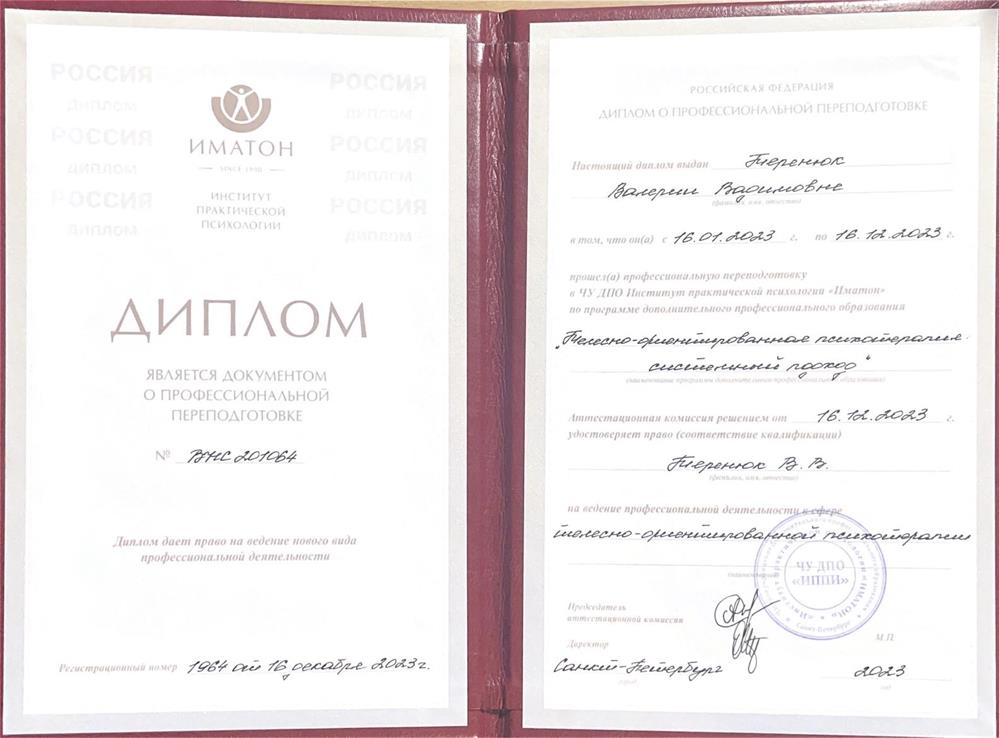 РОССИЯ РОССИЯ
ДИПЛОМ ДИПЛОМ
РОССИЯ РОССИЯ
ДИПЛОМ ДИПЛОМ
РОССИЯ РОССИЯ
ДИПЛОМ ДИПЛОМ
ИМАТОН
SINCE 1990
ИНСТИТУТ
ПРАКТИЧЕСКОЙ
ПСИХОЛОГИИ
ДИПЛОМ
ЯВЛЯЕТСЯ ДОКУМЕНТОМ
О ПРОФЕССИОНАЛЬНОЙ
ПЕРЕПОДГОТОВКЕ
№ ВНС 201064
Диплом дает право на ведение нового вида
профессиональной деятельности
Регистрационный номер 1964 от 16 декабря 2023 г.
РОССИЙСКАЯ ФЕДЕРАЦИЯ
ДИПЛОМ О ПРОФЕССИОНАЛЬНОЙ ПЕРЕПОДГОТОВКЕ
Настоящий диплом выдан Теренюк
Валерии Вадимовне
(фамилия, имя, отчество)
в том, что он(а) с 16.01.2023 г. по 16.12.2023 г.
прошел(а) профессиональную переподготовку
в ЧУ ДПО Институт практической психологии «Иматон»
по программе дополнительного профессионального образования
„Телесно-ориентированная психотерапия:
системный подход"
(наименование программы дополнительного профессионального образования)
Аттестационная комиссия решением от 16.12.2023 г.
удостоверяет право (соответствие квалификации)
Теренюк В. В.
(фамилия, имя, отчество)
на ведение профессиональной деятельности в сфере
телесно-ориентированной психотерапии
ЧУ ДПО
«ИППИ»
Санкт-Петербург
Председатель
аттестационной комиссии
Директор
М.П.
Санкт-Петербург 2023
город год